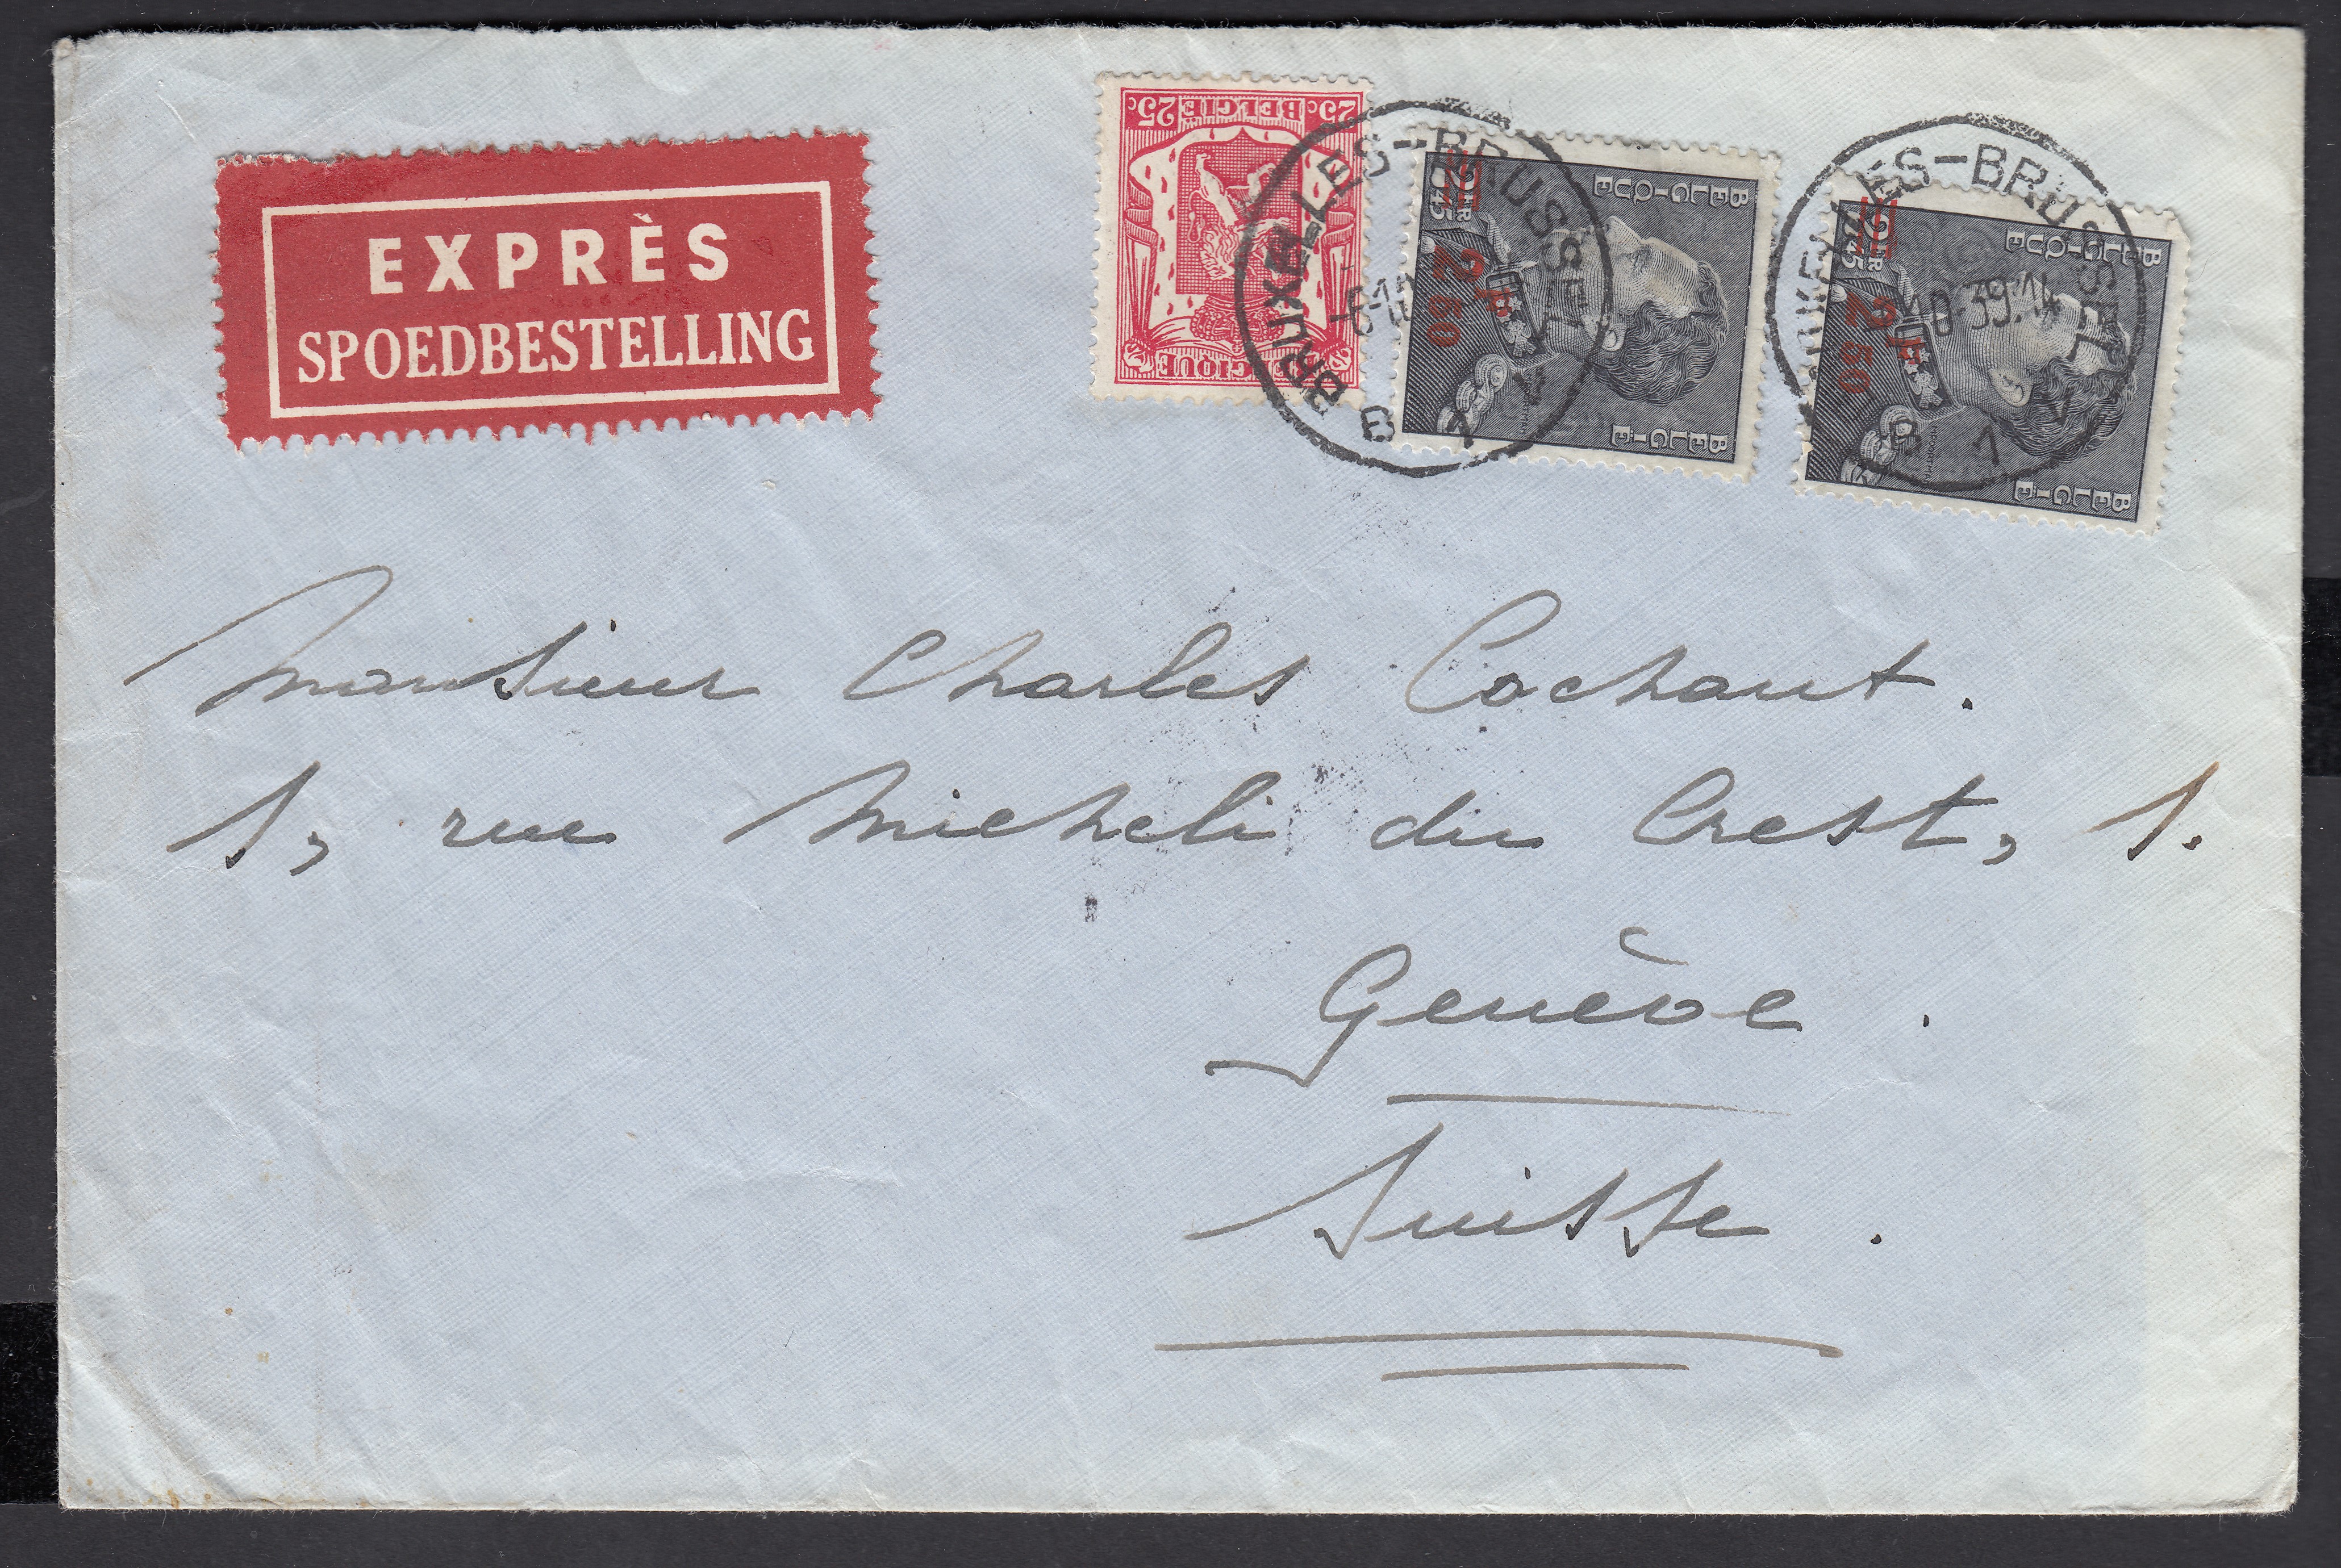 EXPRÈS
SPOEDBESTELLING
25c BELGIE 25c
BELGIQUE
BRUXELLES-BRUSSEL
-6-10
B 1 B
BELGIQUE
BELGIE
2F45
2F50
BRUXELLES-BRUSSEL
10-39.14
B 1 V
BELGIQUE
BELGIE
2F50
Monsieur Charles Cochaut.
1, rue Micheli du Crest, 1.
Genève.
Suisse.